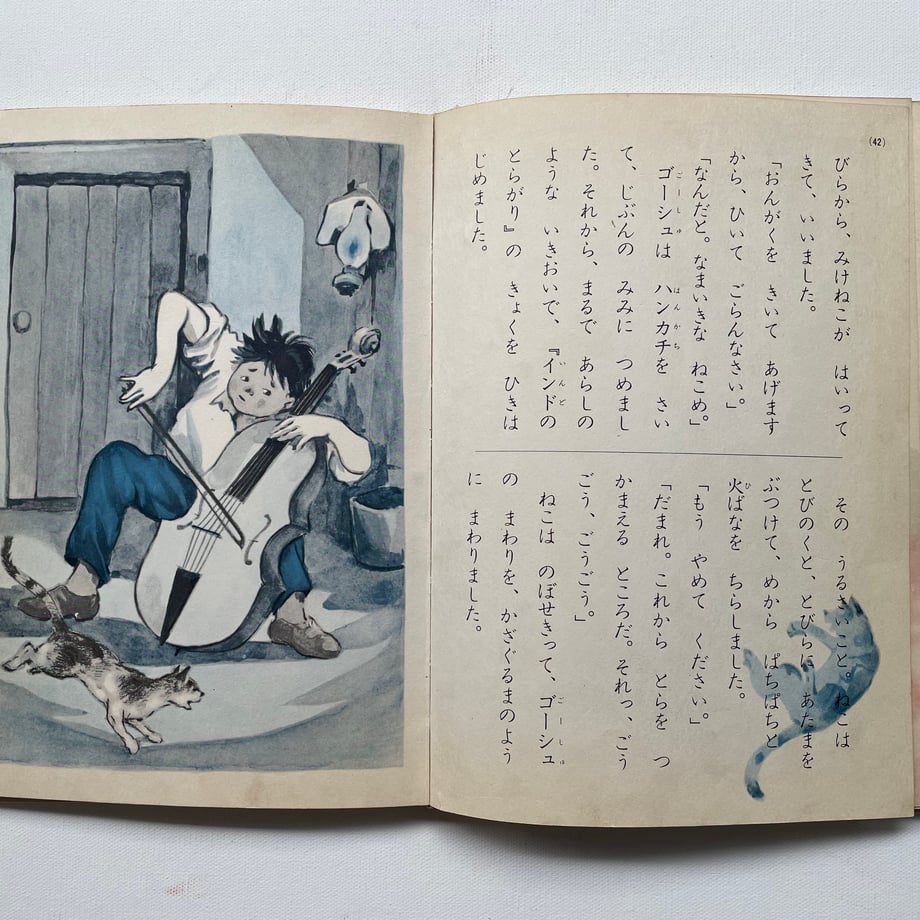 (42)
びらから、みけねこが　はいって
きて、いいました。
「おんがくを　きいて　あげます
から、ひいて　ごらんなさい。」
「なんだと。なまいきな　ねこめ。」
ゴーシュは　ハンカチを　さい
て、じぶんの　みみに　つめまし
た。それから、まるで　あらしの
ような　いきおいで、『インドの
とらがり』の　きょくを　ひきは
じめました。
その　うるさいこと。ねこは
とびのくと、とびらに　あたまを
ぶつけて、めから　ぱちぱちと
火ばなを　ちらしました。
「もう　やめて　ください。」
「だまれ。これから　とらを　つ
かまえる　ところだ。それっ、ごう
ごう、ごうごう。」
ねこは　のぼせきって、ゴーシュ
の　まわりを、かざぐるまのよう
に　まわりました。